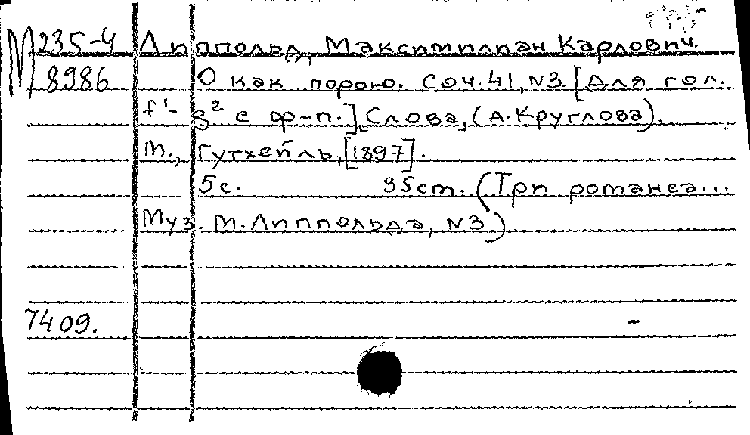 М 235-4 Липпольд, Максимилиан Карлович.
8986 О как порою. Соч. 41, N3. [Для гол.
f¹- g² с ф-п.] Слова (А. Круглова).
М., Гутхейль, [1897].
5с. 35cm. (Три романса...
Муз. М. Липпольда, N3)
7409.